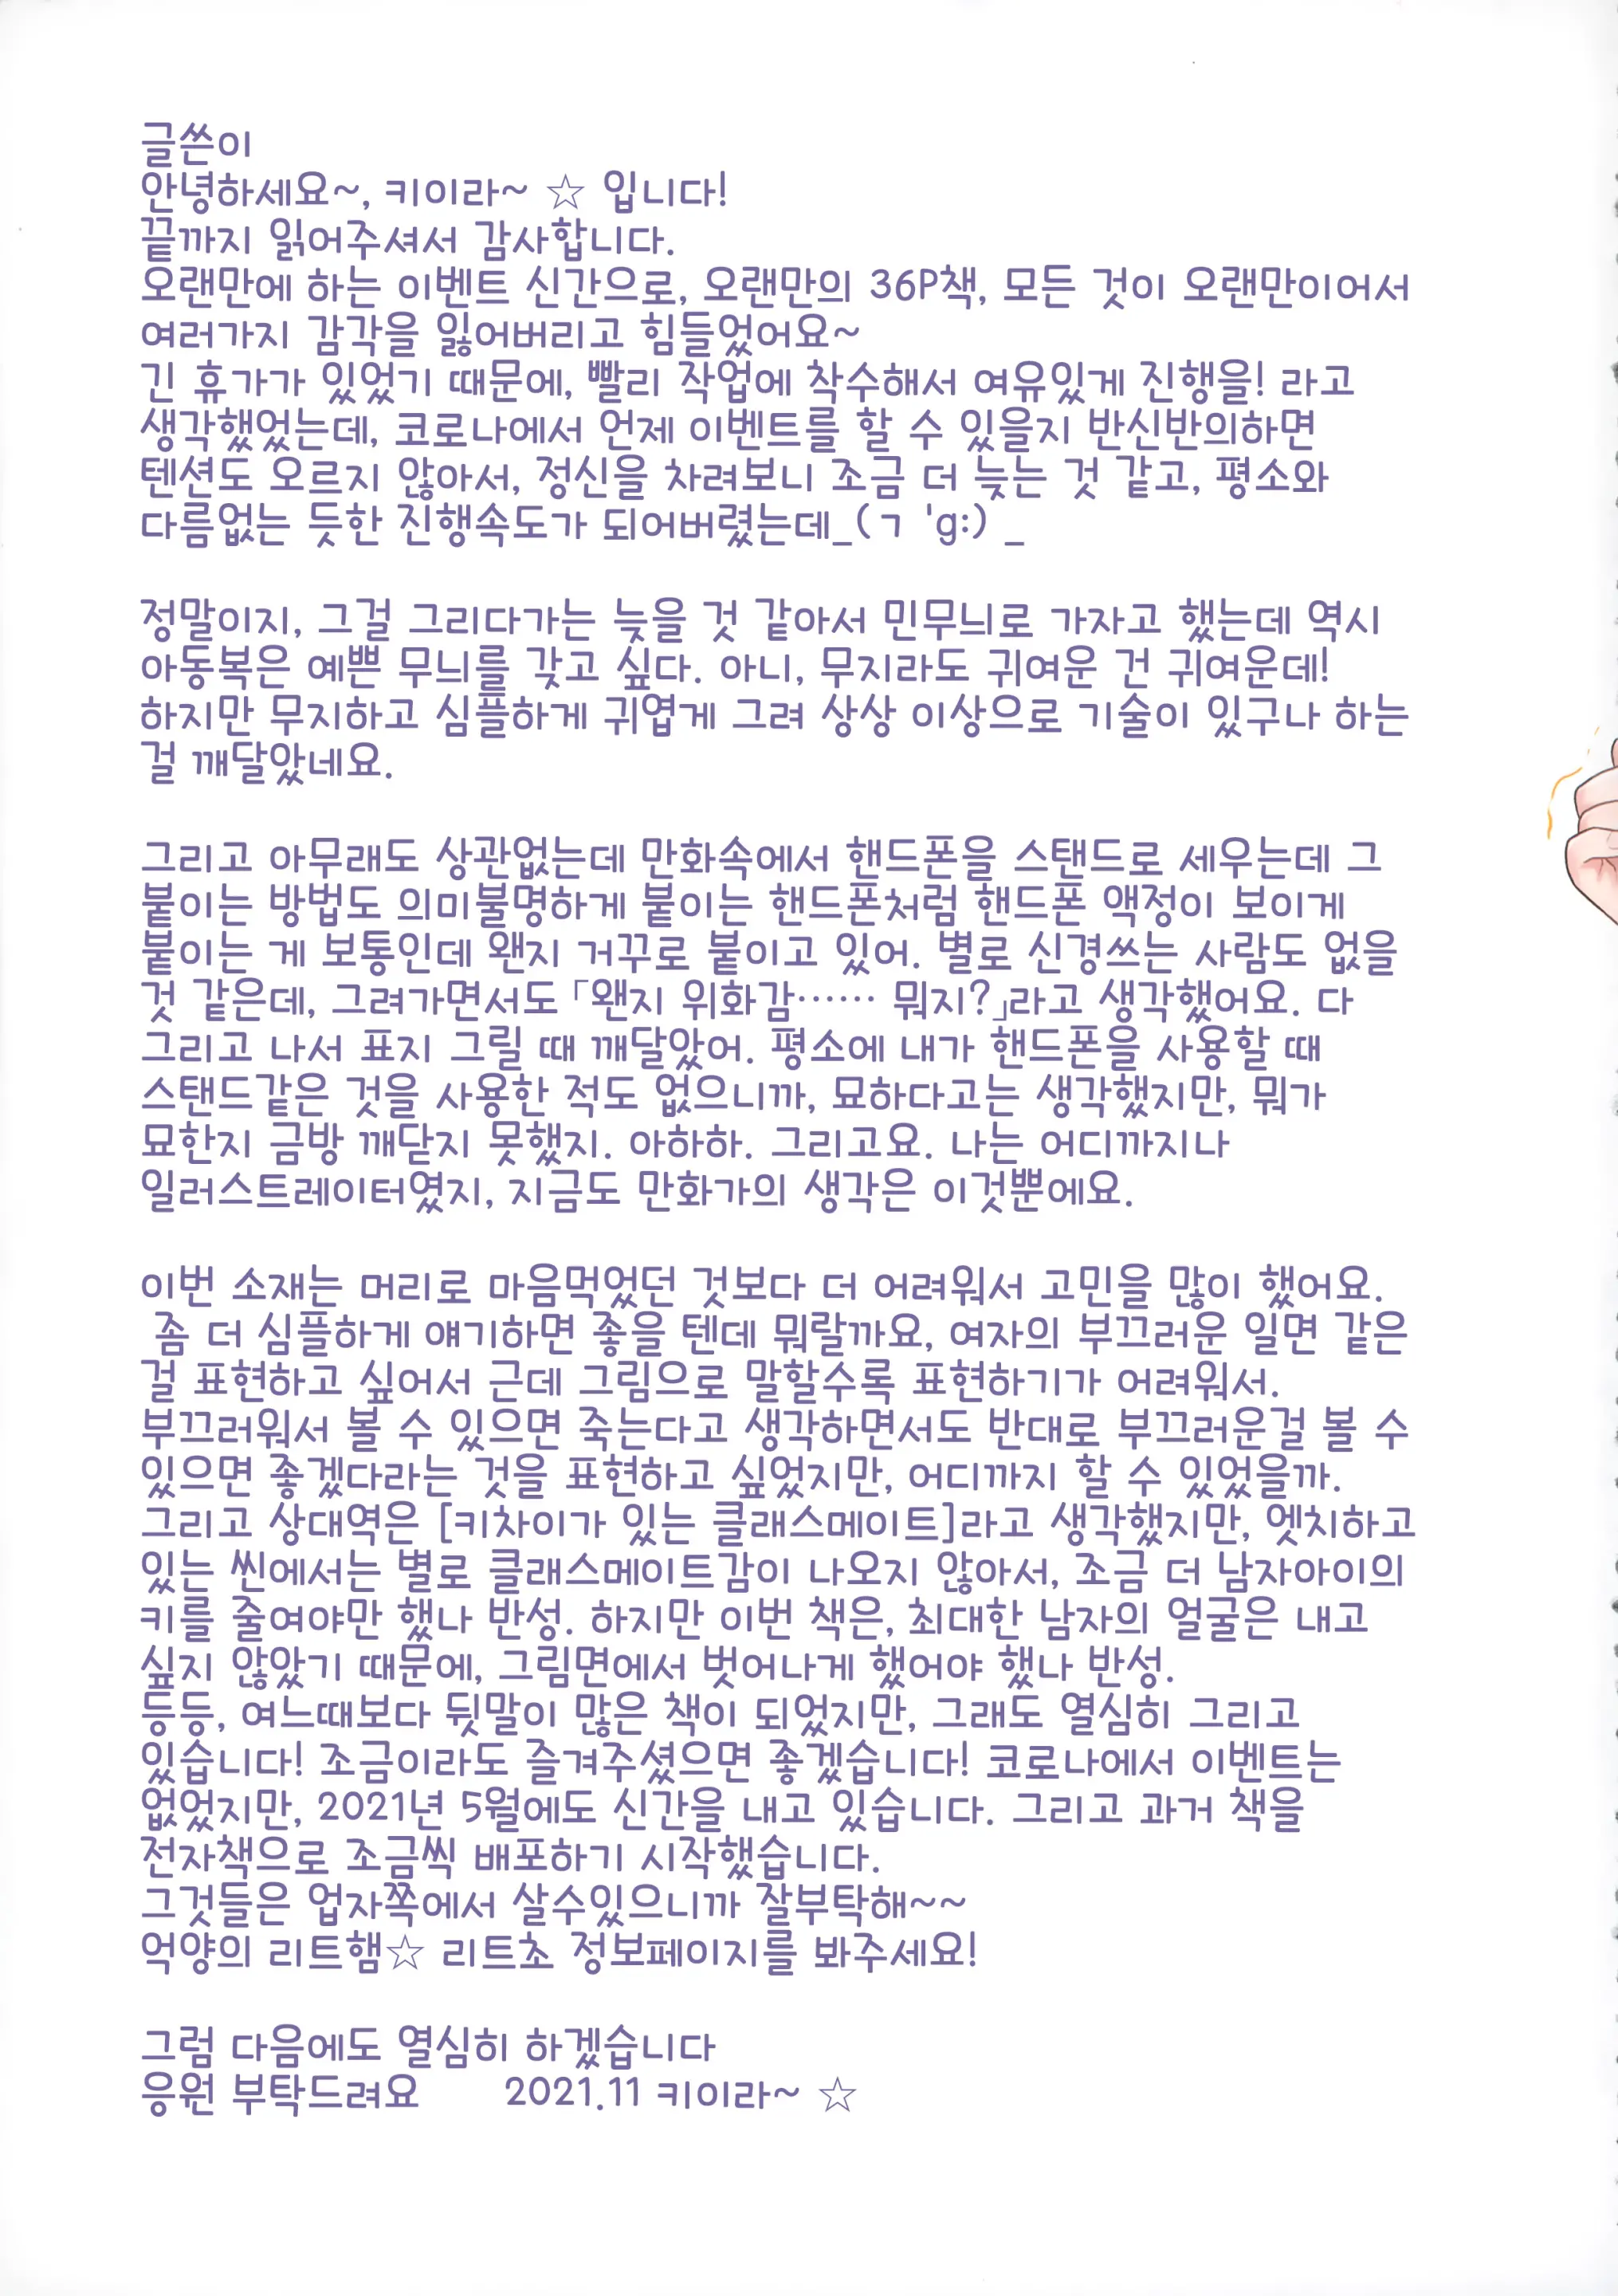 글쓴이
안녕하세요~, 키이라~ ☆ 입니다!
끝까지 읽어주셔서 감사합니다.
오랜만에 하는 이벤트 신간으로, 오랜만의 36P책, 모든 것이 오랜만이어서
여러가지 감각을 잃어버리고 힘들었어요~
긴 휴가가 있었기 때문에, 빨리 작업에 착수해서 여유있게 진행을! 라고
생각했었는데, 코로나에서 언제 이벤트를 할 수 있을지 반신반의하면
텐션도 오르지 않아서, 정신을 차려보니 조금 더 늦는 것 같고, 평소와
다름없는 듯한 진행속도가 되어버렸는데_(ㄱ 'g:) _
정말이지, 그걸 그리다가는 늦을 것 같아서 민무늬로 가자고 했는데 역시
아동복은 예쁜 무늬를 갖고 싶다. 아니, 무지라도 귀여운 건 귀여운데!
하지만 무지하고 심플하게 귀엽게 그려 상상 이상으로 기술이 있구나 하는
걸 깨달았네요.
그리고 아무래도 상관없는데 만화속에서 핸드폰을 스탠드로 세우는데 그
붙이는 방법도 의미불명하게 붙이는 핸드폰처럼 핸드폰 액정이 보이게
붙이는 게 보통인데 왠지 거꾸로 붙이고 있어. 별로 신경쓰는 사람도 없을
것 같은데, 그려가면서도 「왠지 위화감…… 뭐지?」라고 생각했어요. 다
그리고 나서 표지 그릴 때 깨달았어. 평소에 내가 핸드폰을 사용할 때
스탠드같은 것을 사용한 적도 없으니까, 묘하다고는 생각했지만, 뭐가
묘한지 금방 깨닫지 못했지. 아하하. 그리고요. 나는 어디까지나
일러스트레이터였지, 지금도 만화가의 생각은 이것뿐에요.
이번 소재는 머리로 마음먹었던 것보다 더 어려워서 고민을 많이 했어요.
좀 더 심플하게 얘기하면 좋을 텐데 뭐랄까요, 여자의 부끄러운 일면 같은
걸 표현하고 싶어서 근데 그림으로 말할수록 표현하기가 어려워서.
부끄러워서 볼 수 있으면 죽는다고 생각하면서도 반대로 부끄러운걸 볼 수
있으면 좋겠다라는 것을 표현하고 싶었지만, 어디까지 할 수 있었을까.
그리고 상대역은 [키차이가 있는 클래스메이트]라고 생각했지만, 엣치하고
있는 씬에서는 별로 클래스메이트감이 나오지 않아서, 조금 더 남자아이의
키를 줄여야만 했나 반성. 하지만 이번 책은, 최대한 남자의 얼굴은 내고
싶지 않았기 때문에, 그림면에서 벗어나게 했어야 했나 반성.
등등, 여느때보다 뒷말이 많은 책이 되었지만, 그래도 열심히 그리고
있습니다! 조금이라도 즐겨주셨으면 좋겠습니다! 코로나에서 이벤트는
없었지만, 2021년 5월에도 신간을 내고 있습니다. 그리고 과거 책을
전자책으로 조금씩 배포하기 시작했습니다.
그것들은 업자쪽에서 살수있으니까 잘부탁해~~
억양의 리트햄☆ 리트초 정보페이지를 봐주세요!
그럼 다음에도 열심히 하겠습니다
응원 부탁드려요 2021.11 키이라~ ☆